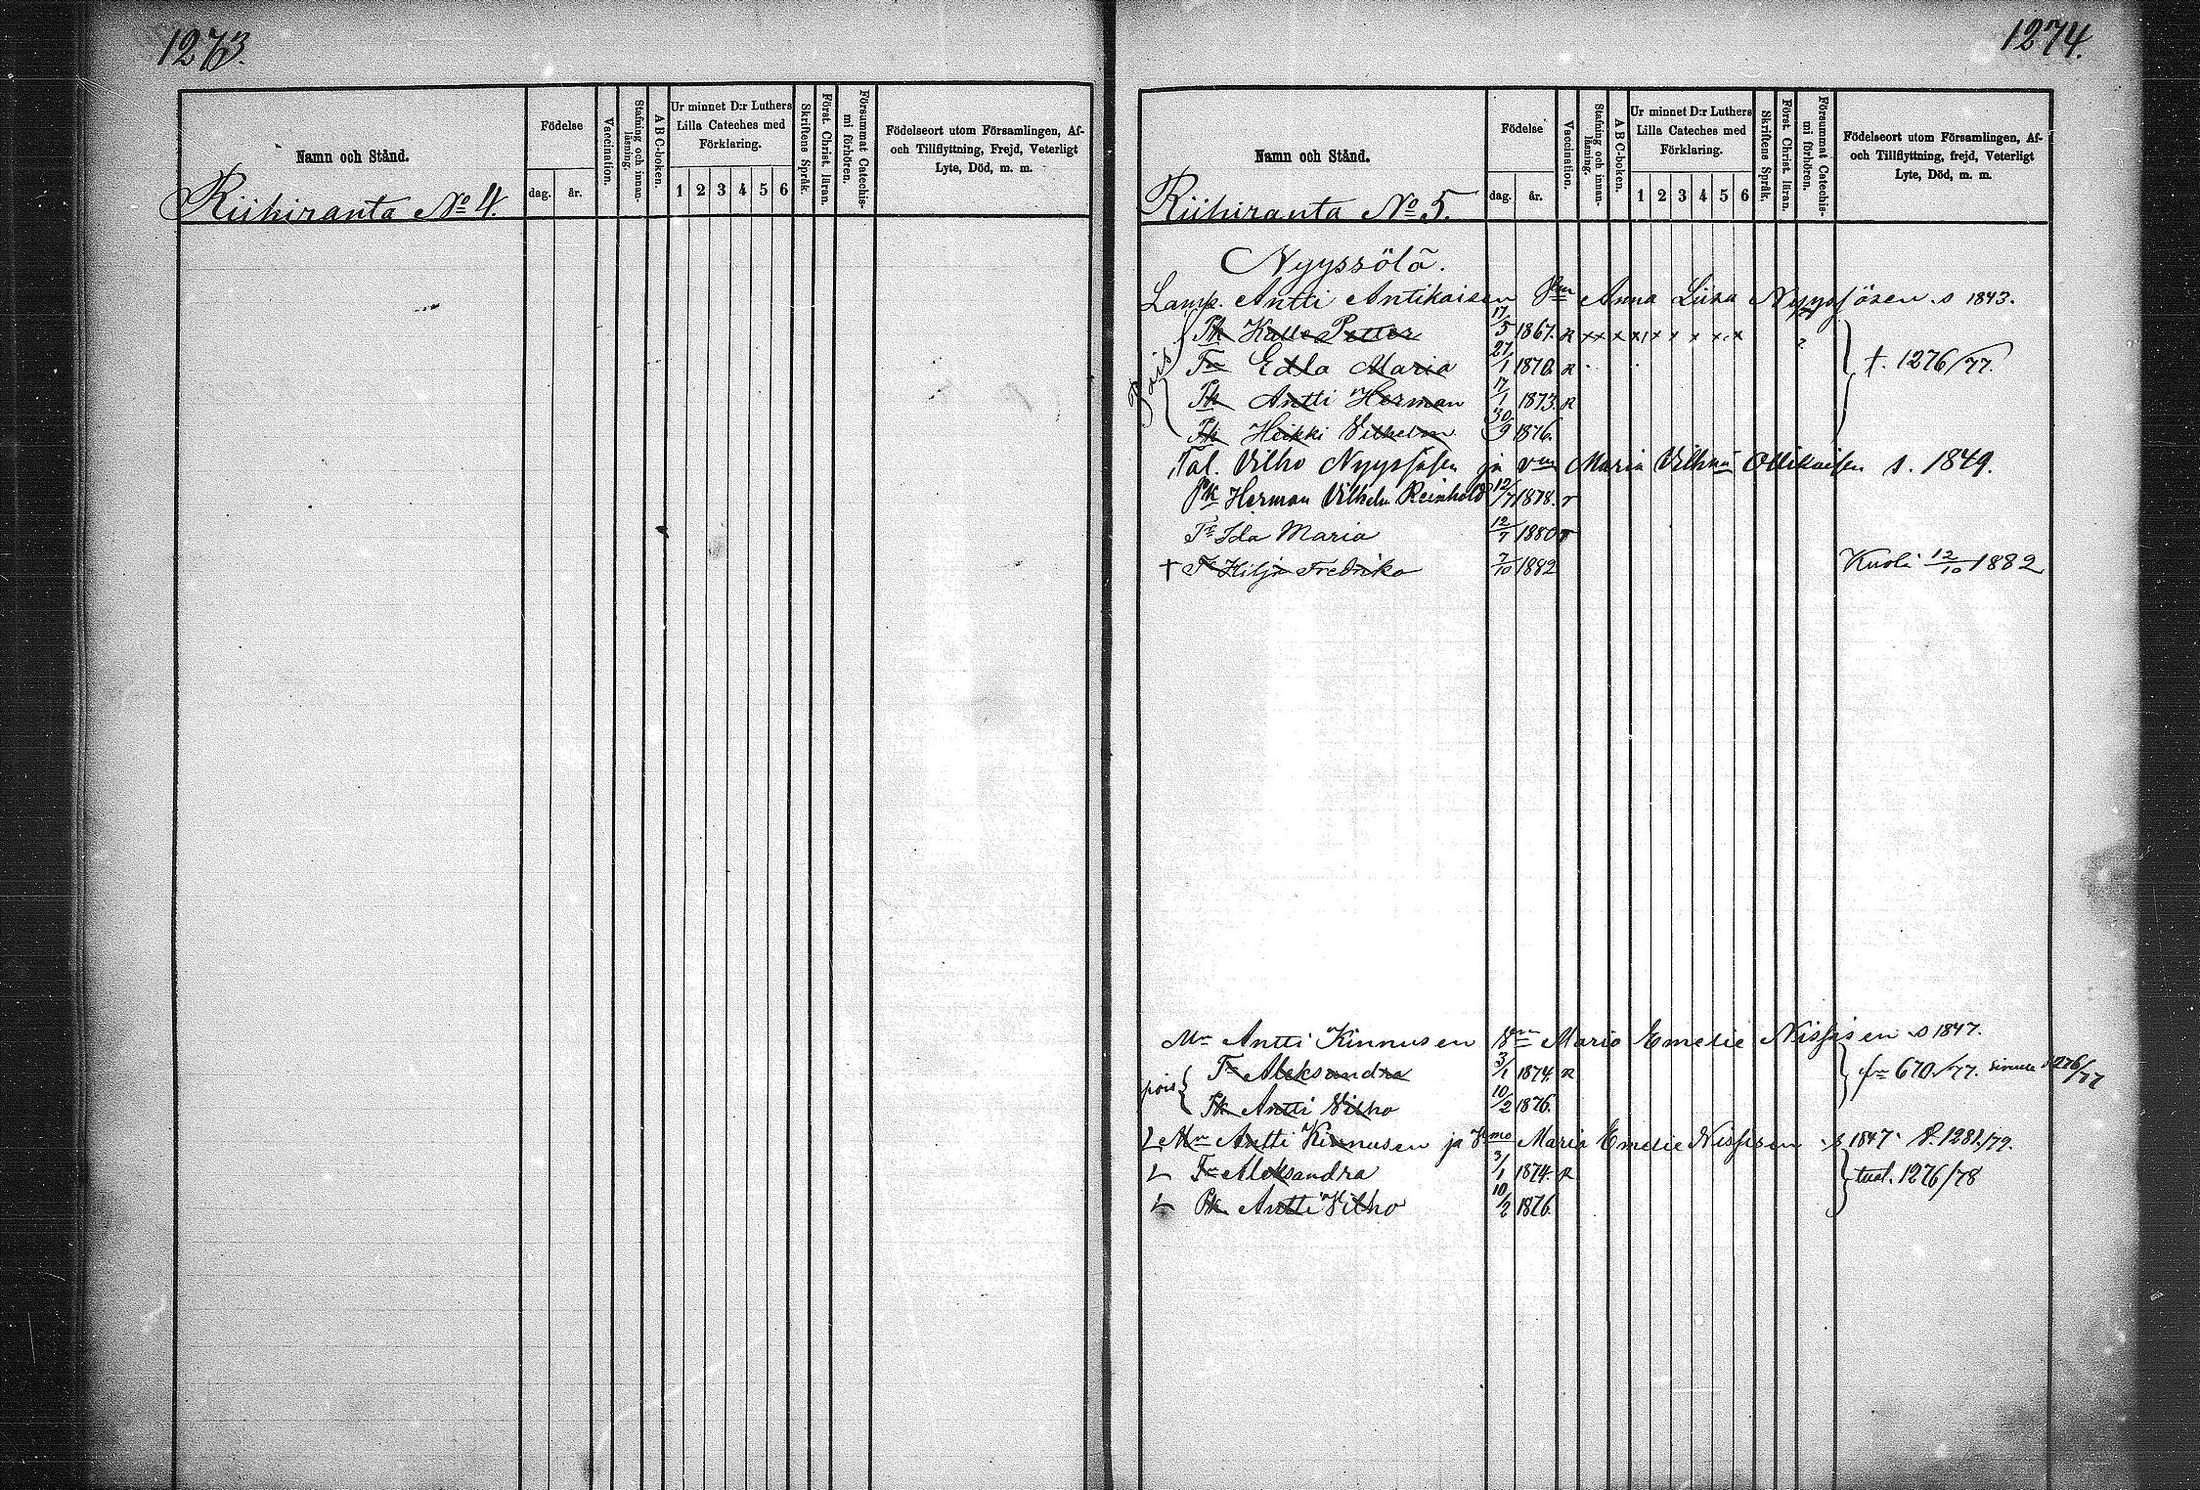 1273.
Namn och Stånd.
Födelse
dag.
år.
Vaccination.
Stafning och innan-
läsning.
A B C-boken.
Ur minnet D:r Luthers
Lilla Cateches med
Förklaring.
1 2 3 4 5 6
Skriftens Språk.
Först. Christ. läran.
Försummat Catechis-
mi förhören.
Födelseort utom Församlingen, Af-
och Tillflyttning, Frejd, Veterligt
Lyte, Död, m. m.
Riihiranta No 4.
1274.
Namn och Stånd.
Födelse
dag.
år.
Vaccination.
Stafning och innan-
läsning.
A B C-boken.
Ur minnet D:r Luthers
Lilla Cateches med
Förklaring.
1 2 3 4 5 6
Skriftens Språk.
Först. Christ. läran.
Försummat Catechis-
mi förhören.
Födelseort utom Församlingen, Af-
och Tillflyttning, frejd, Veterligt
Lyte, Död, m. m.
Riihiranta No 5.
Nyyssölä.
Lamp. Antti Antikaisen Anna Liisa Nyyssösen s 1843.
pois
Pk Kalle Petter 17/5 1867. R x x x x x x x x x
Tr Edla Maria 27/1 1870. R † 1276/77.
Pk Antti Herman 17/1 1873. R
Pk Heikki Vilhelm 30/9 1876.
Tal. Vilho Nyyssösen ja vm Maria Vilhna Ollikaisen s. 1849.
Pk Herman Vilhelm Reinhold 12/7 1878. r
Tr Ida Maria 12/7 1880 r
† Tr Hilja Fredrika 7/10 1882 Kuoli 12/10 1882
Mn Antti Kinnusen Maria Emelie Nissisen s 1847.
pois
Tr Aleksandra 3/1 1874. R 670./77. 1276/77
Pk Antti Vilho 10/2 1876.
L Mn Antti Kinnusen ja Vmo Maria Emelie Nissisen s 1847. 1281/79.
L Tr Aleksandra 3/1 1874. R tual. 1276/78
L Pk Antti Vilho 10/2 1876.